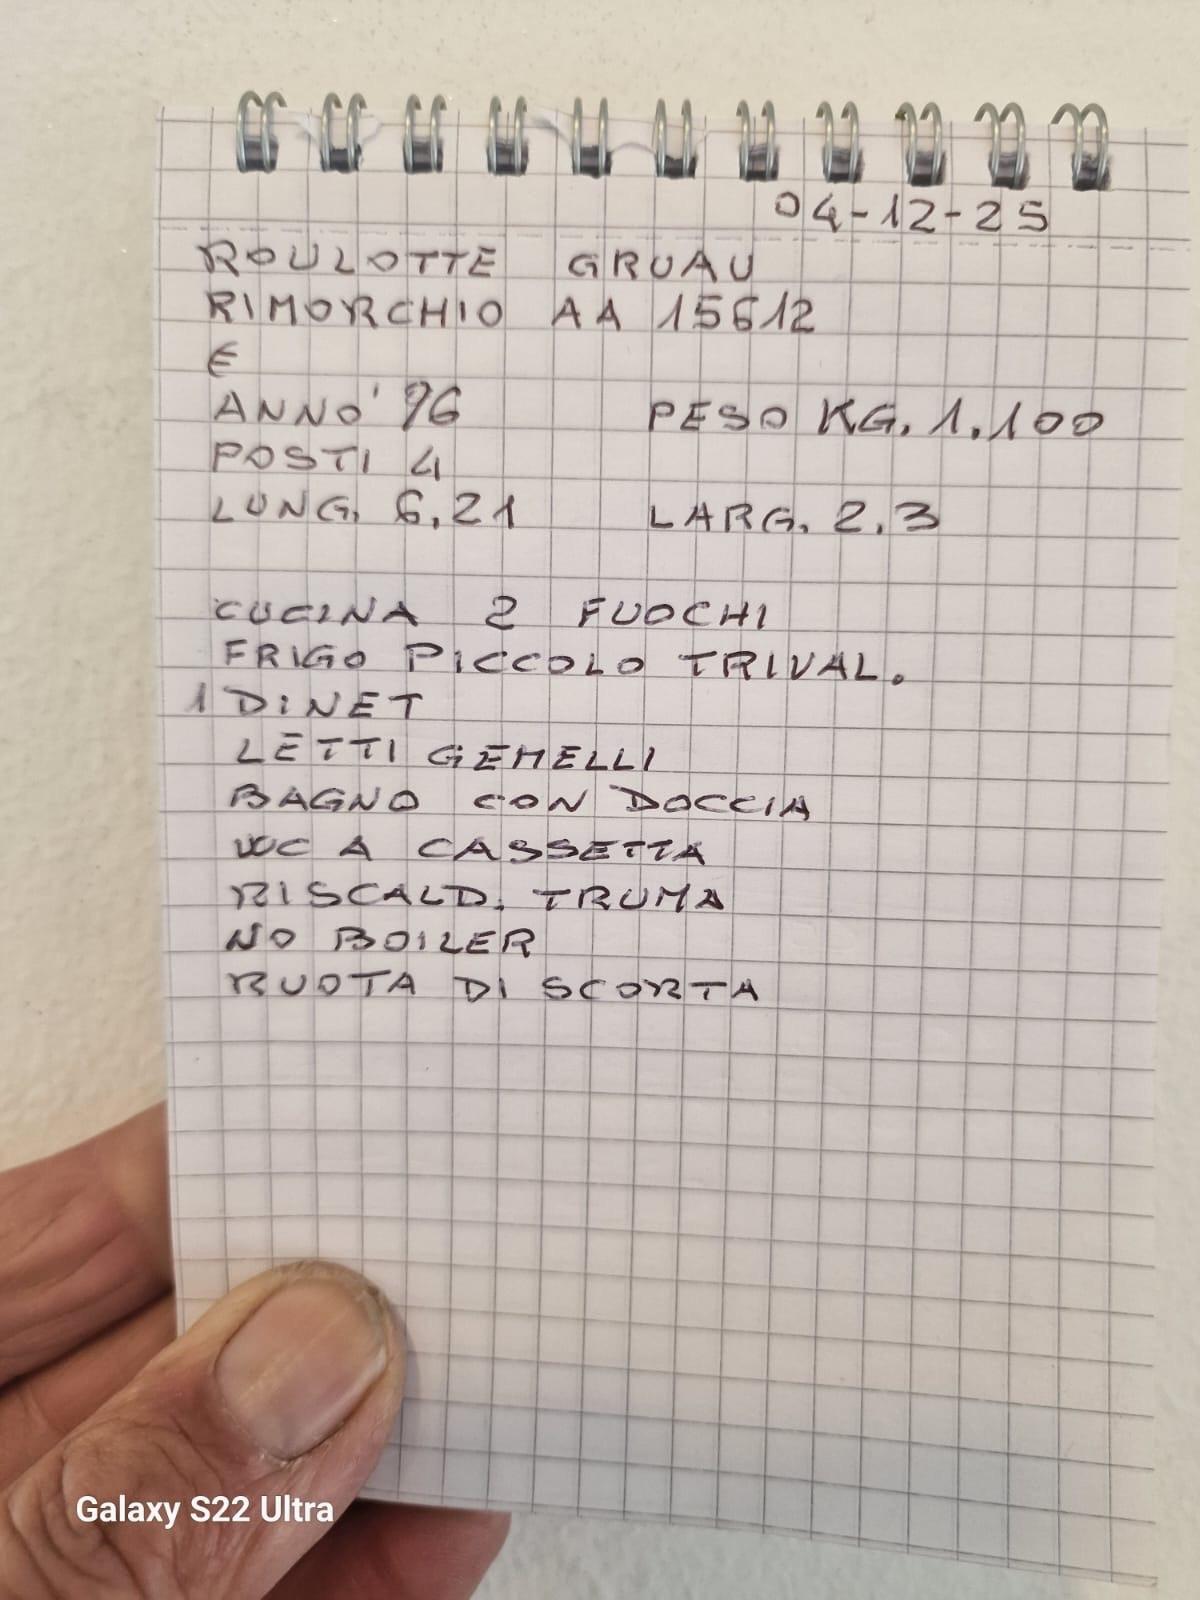 04-12-25
ROULOTTE GRUAU
RIMORCHIO AA 15612
€
ANNO '96 PESO KG. 1.100
POSTI 4
LUNG. 6,21 LARG. 2.3
CUCINA 2 FUOCHI
FRIGO PICCOLO TRIVAL.
1 DINET
LETTI GEMELLI
BAGNO CON DOCCIA
WC A CASSETTA
RISCALD. TRUMA
NO BOILER
RUOTA DI SCORTA
Galaxy S22 Ultra